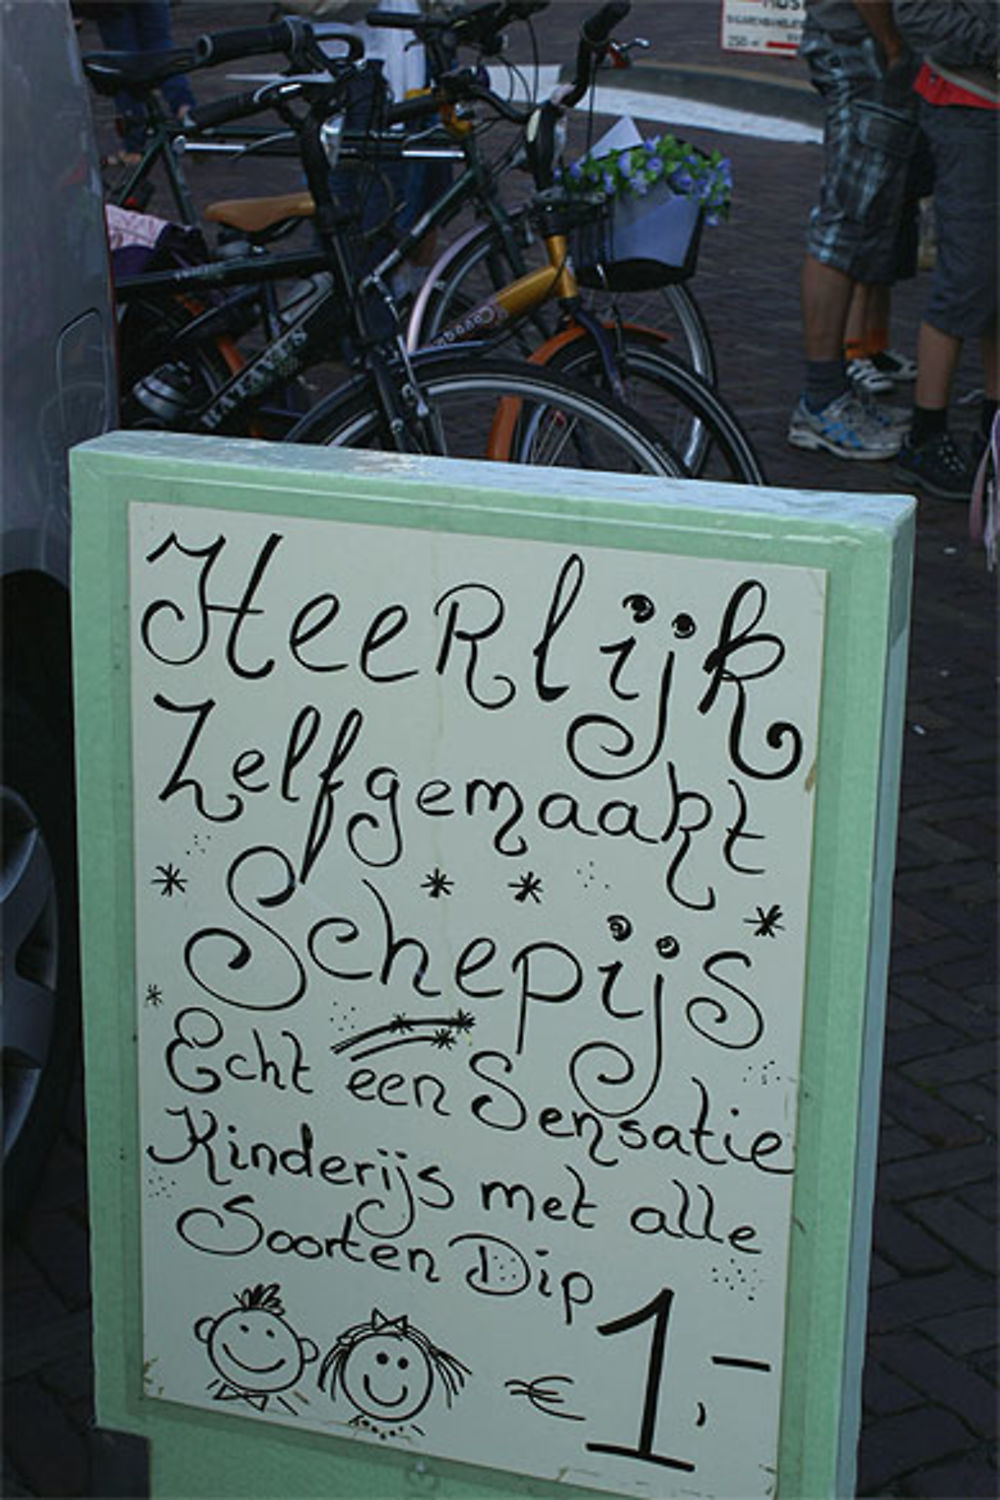 HeeRlijk
Zelfgemaakt
Schepijs
Echt een Sensatie
Kinderijs met alle
Soorten Dip
€ 1,-
BATAVUS